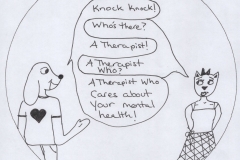 Knock Knock!
Who's there?
A Therapist!
A Therapist
Who?
A Therapist Who
Cares about
Your mental
health!